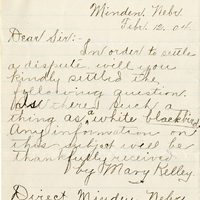 Minden, Nebr
Febr. 12. 04.
Dear Sir:-
In order to settle
a dispute will you
kindly settled the
following question.
Is there such a
thing as a white blackbird
Any information on
this subject will be
thankfully received
by Mary Kelley.
Direct Minden, Nebr.